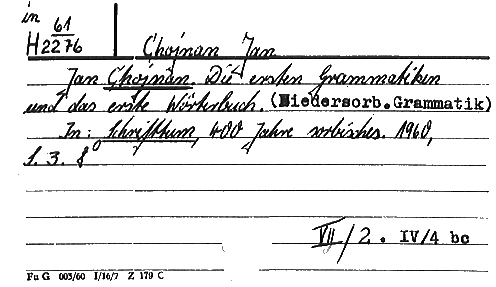 in
61
H 2276
Chojnan Jan
Jan Chojnan. Die ersten Grammatiken
und das erste Wörterbuch. (Niedersorb.Grammatik)
In: Schrifttum, 400 Jahre sorbisches. 1960,
S. 3. 8°
VII/2. IV/4 bc
Fu G 003/60 I/16/7 Z 179 C